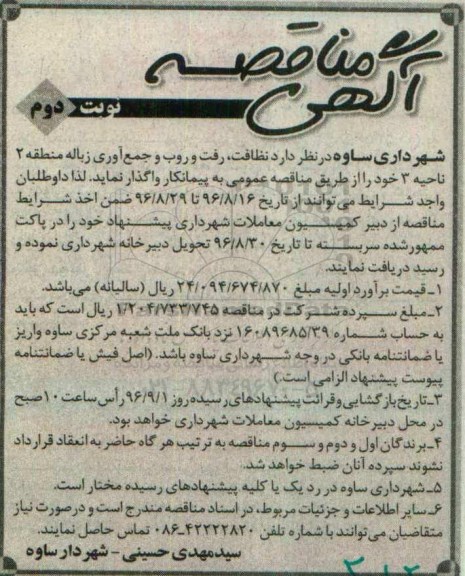 آگهی مناقصه
نوبت دوم
شهرداری ساوه در نظر دارد نظافت، رفت و روب و جمع‌آوری زباله منطقه ۲
ناحیه ۳ خود را از طریق مناقصه عمومی به پیمانکار واگذار نماید. لذا داوطلبان
واجد شرایط می‌توانند از تاریخ ۹۶/۸/۱۶ تا ۹۶/۸/۲۹ ضمن اخذ شرایط
مناقصه از دبیر کمیسیون معاملات شهرداری پیشنهاد خود را در پاکت
ممهور شده سربسته تا تاریخ ۹۶/۸/۳۰ تحویل دبیرخانه شهرداری نموده و
رسید دریافت نمایند.
۱ـ قیمت برآورد اولیه مبلغ ۲۴/۰۹۴/۶۷۴/۸۷۰ ریال (سالیانه) می‌باشد.
۲ـ مبلغ سپرده شرکت در مناقصه ۱/۲۰۴/۷۳۳/۷۴۵ ریال است که باید
به حساب شماره ۱۶۰۸۹۶۸۵/۳۹ نزد بانک ملت شعبه مرکزی ساوه واریز
یا ضمانتنامه بانکی در وجه شهرداری ساوه باشد. (اصل فیش یا ضمانتنامه
پیوست پیشنهاد الزامی است)
۳ـ تاریخ بازگشایی و قرائت پیشنهادهای رسیده روز ۹۶/۹/۱ رأس ساعت ۱۰ صبح
در محل دبیرخانه کمیسیون معاملات شهرداری خواهد بود.
۴ـ برندگان اول و دوم و سوم مناقصه به ترتیب هر گاه حاضر به انعقاد قرارداد
نشوند سپرده آنان ضبط خواهد شد.
۵ـ شهرداری ساوه در رد یک یا کلیه پیشنهادهای رسیده مختار است.
۶ـ سایر اطلاعات و جزئیات مربوط، در اسناد مناقصه مندرج است و در صورت نیاز
متقاضیان می‌توانند با شماره تلفن ۴۲۲۲۲۸۲۰ـ۰۸۶ تماس حاصل نمایند.
سیدمهدی حسینی - شهردار ساوه